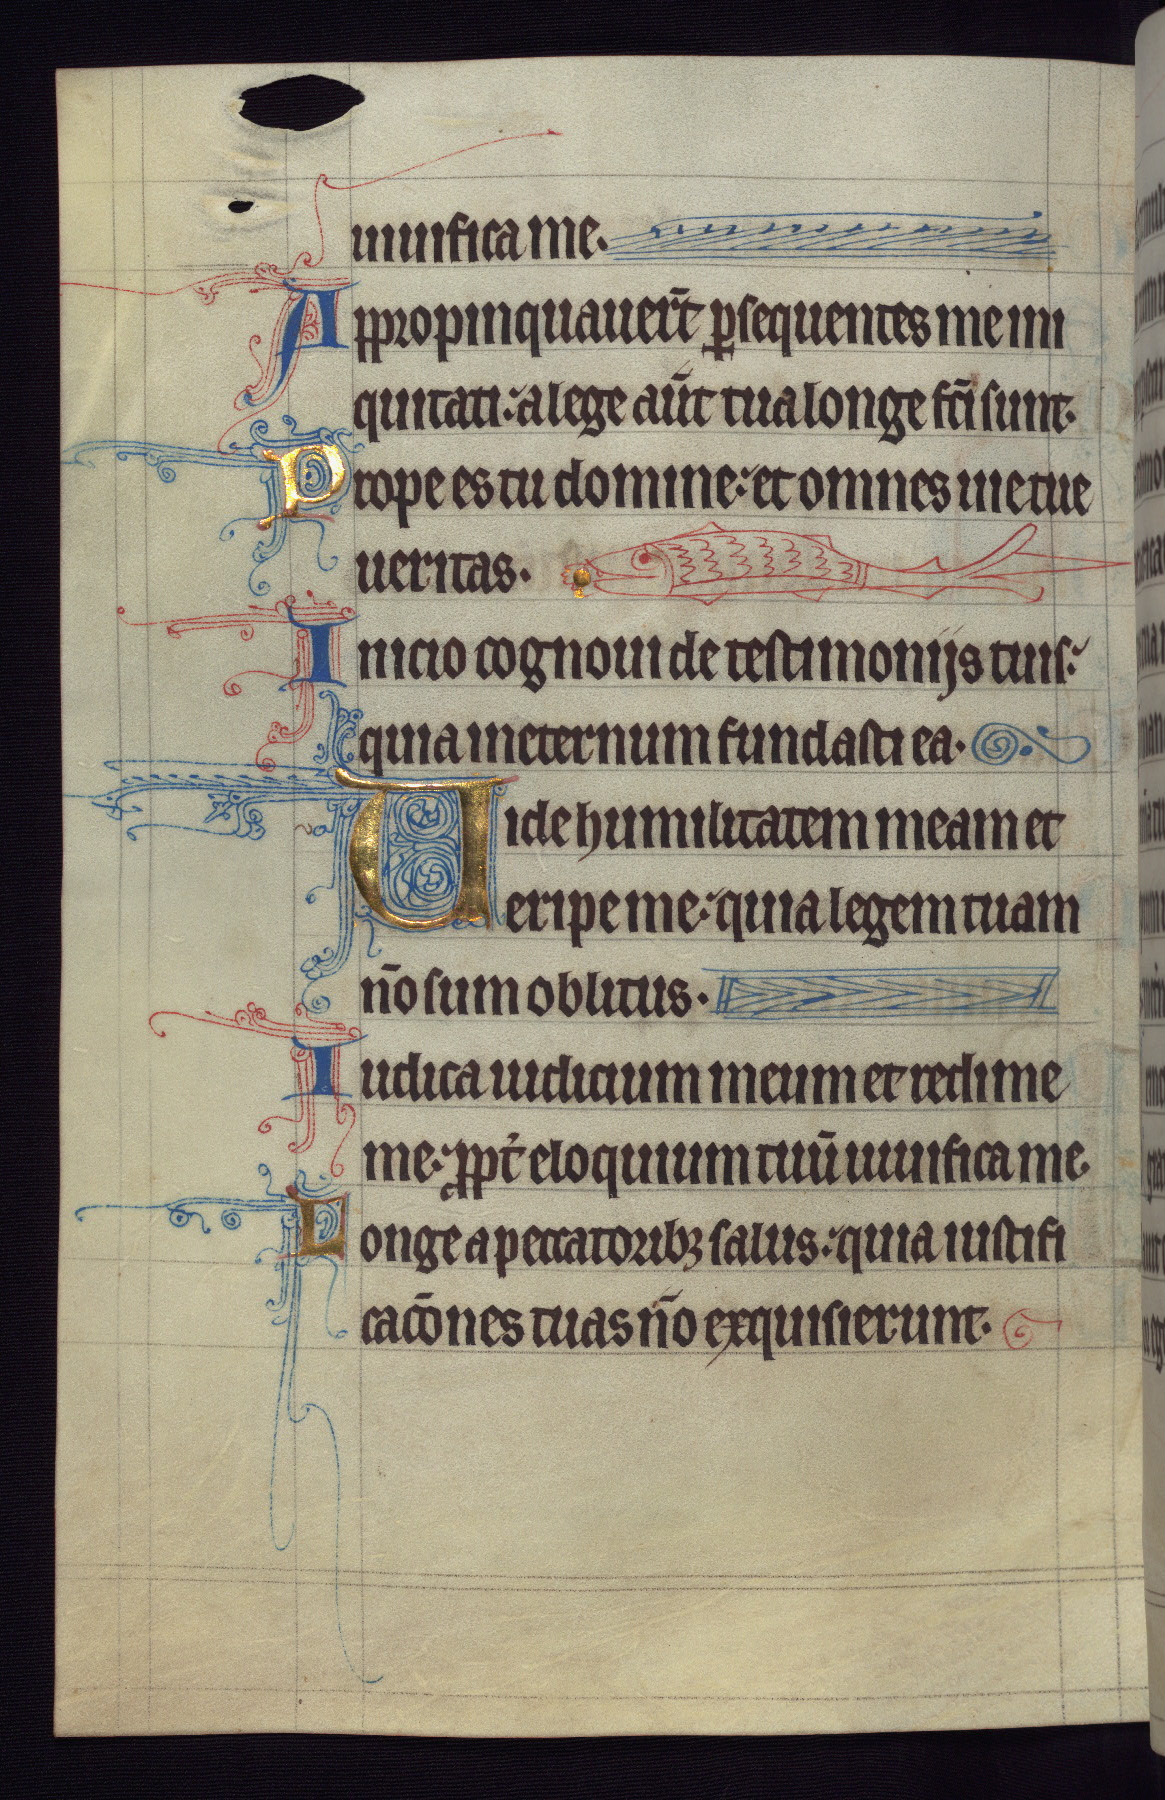 uiuifica me.
Appropinquauer̄t ꝑsequentes me ini
quitati: a lege aūt tua longe fc̄i sunt.
Prope es tu domine: et omnes uie tue
ueritas.
Inicio cognoui de testimonijs tuis:
quia ineternum fundasti ea.
Uide humilitatem meam et
eripe me: quia legem tuam
n̄o sum oblitus.
Iudica iudicium meum et redime
me: ꝓpt̄ eloquium tuū uiuifica me.
Longe a peccatoribꝫ salus: quia iustifi
cac̄ones tuas n̄o exquisierunt.